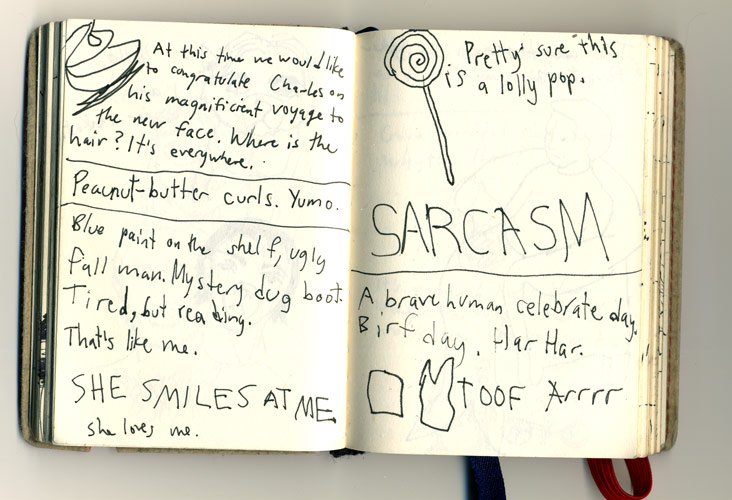 At this time we would like
to congratulate Charles on
his magnificient voyage to
the new face. Where is the
hair? It's everywhere.
Peacnut-butter curls. Yumo.
Blue paint on the shelf, ugly
fall man. Mystery dug boot.
Tired, but reading.
That's like me.
SHE SMILES AT ME
she loves me.
Pretty sure this
is a lolly pop.
SARCASM
A brave human celebrate day.
Birfday. Har Har.
TOOF Arrrr